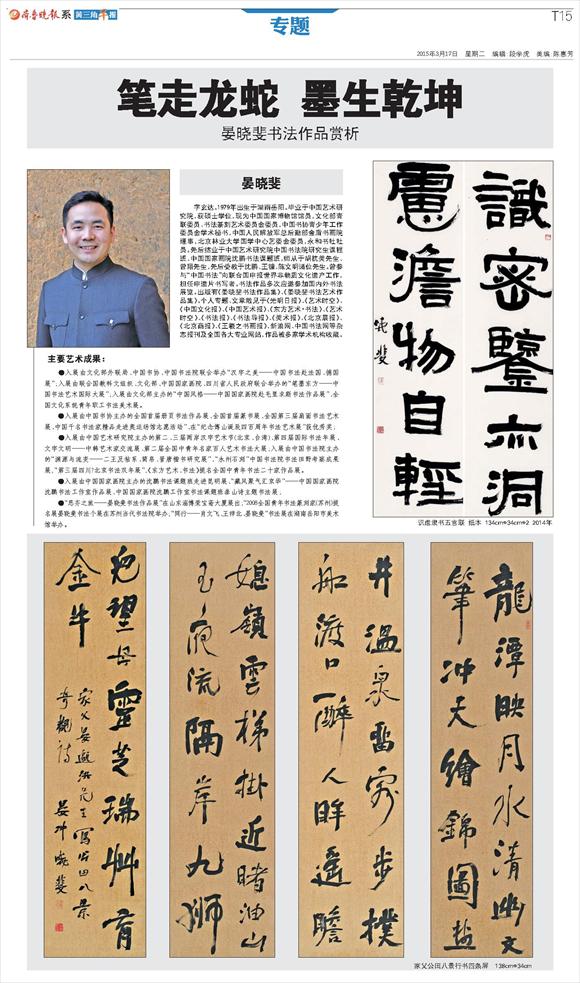 齐鲁晚报系 黄三角早报
专题
T15
2015年3月17日 星期二 编辑:段学虎 美编:陈惠芳
笔走龙蛇 墨生乾坤
晏晓斐书法作品赏析
晏晓斐
字玄达,1979年出生于湖南岳阳,毕业于中国艺术研
究院,获硕士学位,现为中国国家博物馆馆员,文化部青
联委员,书法篆刻艺术委员会委员,中国书协青少年工作
委员会学术秘书,中国人民解放军总后勤部金盾书画院
理事,北京林业大学国学中心艺委会委员,永和书社社
员,先后结业于中国艺术研究院中国书法院研究生课程
班、中国国家画院沈鹏书法课题班,师从于胡抗美先生、
曾翔先生,先后受教于沈鹏、王镛、陈文明诸位先生,曾参
与“中国书法”向联合国申报世界非物质文化遗产工作,
担任申遗片书写者,书法作品多次应邀参加国内外书法
展览,出版有《晏晓斐书法作品集》、《晏晓斐书法艺术作
品集》,个人专题、文章散见于《光明日报》、《艺术时空》、
《中国文化报》、《中国艺术报》、《东方艺术·书法》、《艺术
时空》、《书法报》、《书法导报》、《美术报》、《北京晨报》、
《北京商报》、《王羲之书画报》、新浪网、中国书法网等杂
志报刊及全国各大专业网站,作品被多家学术机构收藏。
主要艺术成果:
●入展由文化部外联局、中国书协、中国书法院联合举办“汉字之美——中国书法赴法国、德国
展”、入展由联合国教科文组织、文化部、中国国家画院、四川省人民政府联合举办的“笔墨东方——中
国书法艺术国际大展”、入展由文化部主办的“中国风格——中国国家画院赴毛里求斯书法作品展”、全
国文化系统青年职工书法美术展。
●入展由中国书协主办的全国首届册页书法作品展、全国首届篆书展、全国第三届扇面书法艺术
展、中国千名书法家精品走进奥运场馆志愿活动”、在“纪念傅山诞辰四百周年书法艺术展”获优秀奖;
●入展由中国艺术研究院主办的第二、三届两岸汉字艺术节(北京、台湾)、第四届国际书法年展、
文字文明——中韩艺术家交流展、第二届全国中青年名家百人艺术书法大展、入展由中国书法院主办
的“渊源与流变——二王及帖系、简帛、晋唐楷书研究展”、“永州石刻”中国书法院书法田野考察成果
展、“第三届四川?北京书法双年展”、《东方艺术.书法》提名全国中青年书法二十家作品展。
●入展由中国国家画院主办的沈鹏书法课题班走进昆明展、“藏风聚气汇京华”——中国国家画院
沈鹏书法工作室作品展、中国国家画院沈鹏工作室书法课题班泰山诗主题书法展、
●“思齐之旅——晏晓斐书法作品展”在山东淄博荣宝斋大厦展出、“2008全国青年书法篆刻家(苏州)提
名展晏晓斐书法个展在苏州当代书法院举办、“同行——肖文飞、王客、晏晓斐”书法展在湖南岳阳市美术
馆举办。
識密鑒亦洞
慮澹物自輕
曉斐
识虑隶书五言联 纸本 134cm*34cm*2 2014年
龍潭映月水清幽文
筆冲天繪錦圖盐
井溫泉留客步樸
船渡口一醉人眸遥瞻
媳嶺雲梯掛近睹油山
玉液流隔岸九獅
兒望母靈芝瑞艸育
金牛
家父晏
寫公田八景
奇觀詩
晏冲曉斐
家父公田八景行书四条屏 138cm*34cm